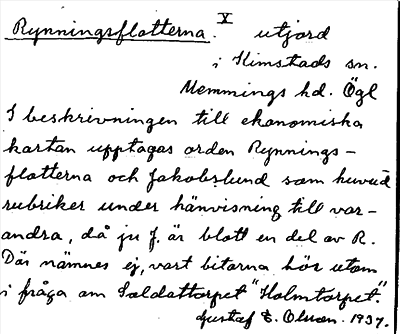 X
Rynningsflotterna. utjord
i Kimstads sn.
Memmings hd. Ögl
I beskrivningen till ekonomiska
kartan upptagas orden Rynnings-
flotterna och Jakobslund som huvud
rubriker under hänvisning till var-
andra, då ju J. är blott en del av R.
Där nämnes ej, vart bitarna hör utom
i fråga om Soldattorpet "Holmtorpet."
Gustaf E. Olson. 1937.